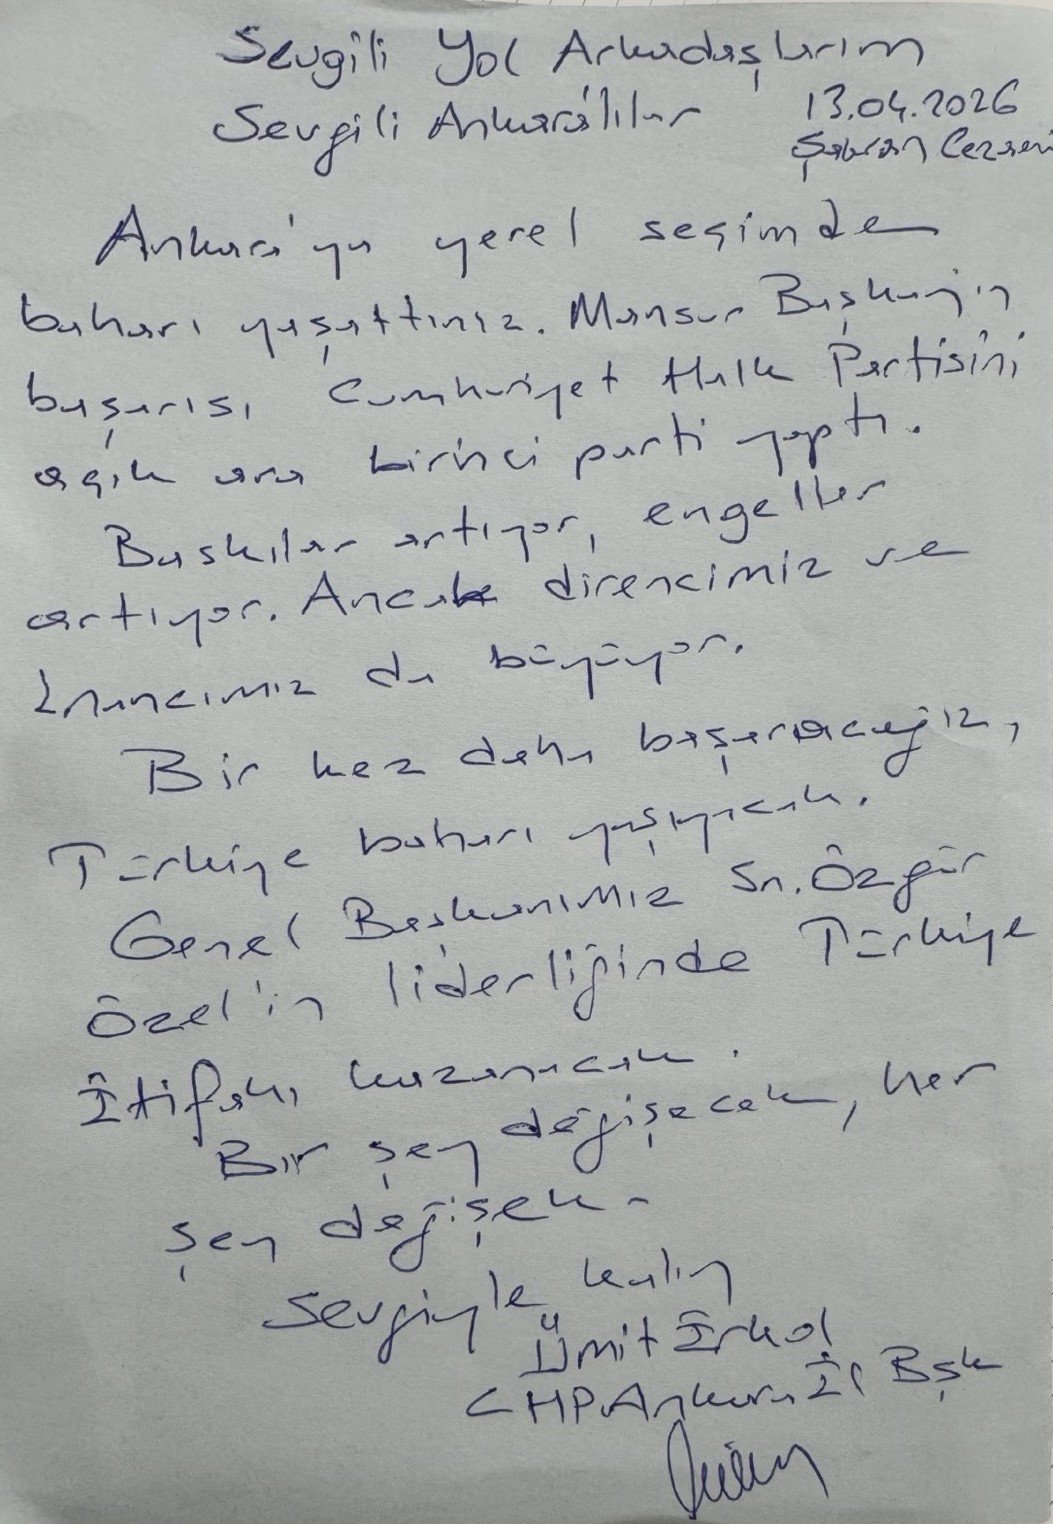 Sevgili Yol Arkadaşlarım
Sevgili Ankara'lılar
13.04.2026
Şakran Cezaevi
Ankara'ya yerel seçimde
baharı yaşattınız. Mansur Başkan'ın
başarısı Cumhuriyet Halk Partisini
açık ara birinci parti yaptı.
Baskılar artıyor, engeller
artıyor. Ancak direncimiz ve
İnancımız da büyüyor.
Bir kez daha başaracağız,
Türkiye baharı yaşıyacak.
Genel Başkanımız Sn. Özgür
Özel'in liderliğinde Türkiye
İtifakı kazanacak.
Bir şey değişecek, her
şey değişek.
Sevgiyle kalın
Ümit Erkol
CHP Ankara İl Bşk